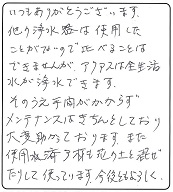 いつもありがとうございます。
他の浄水器は使用した
ことがないので比べることは
できませんが、アクアスは全生活
水が浄水できます。
そのうえ手間がかからず
メンテナンスはきちんとしており
大変助かっております。また
使用ろ材も花の土と混ぜ
たりして使っています。今後もよろしく。